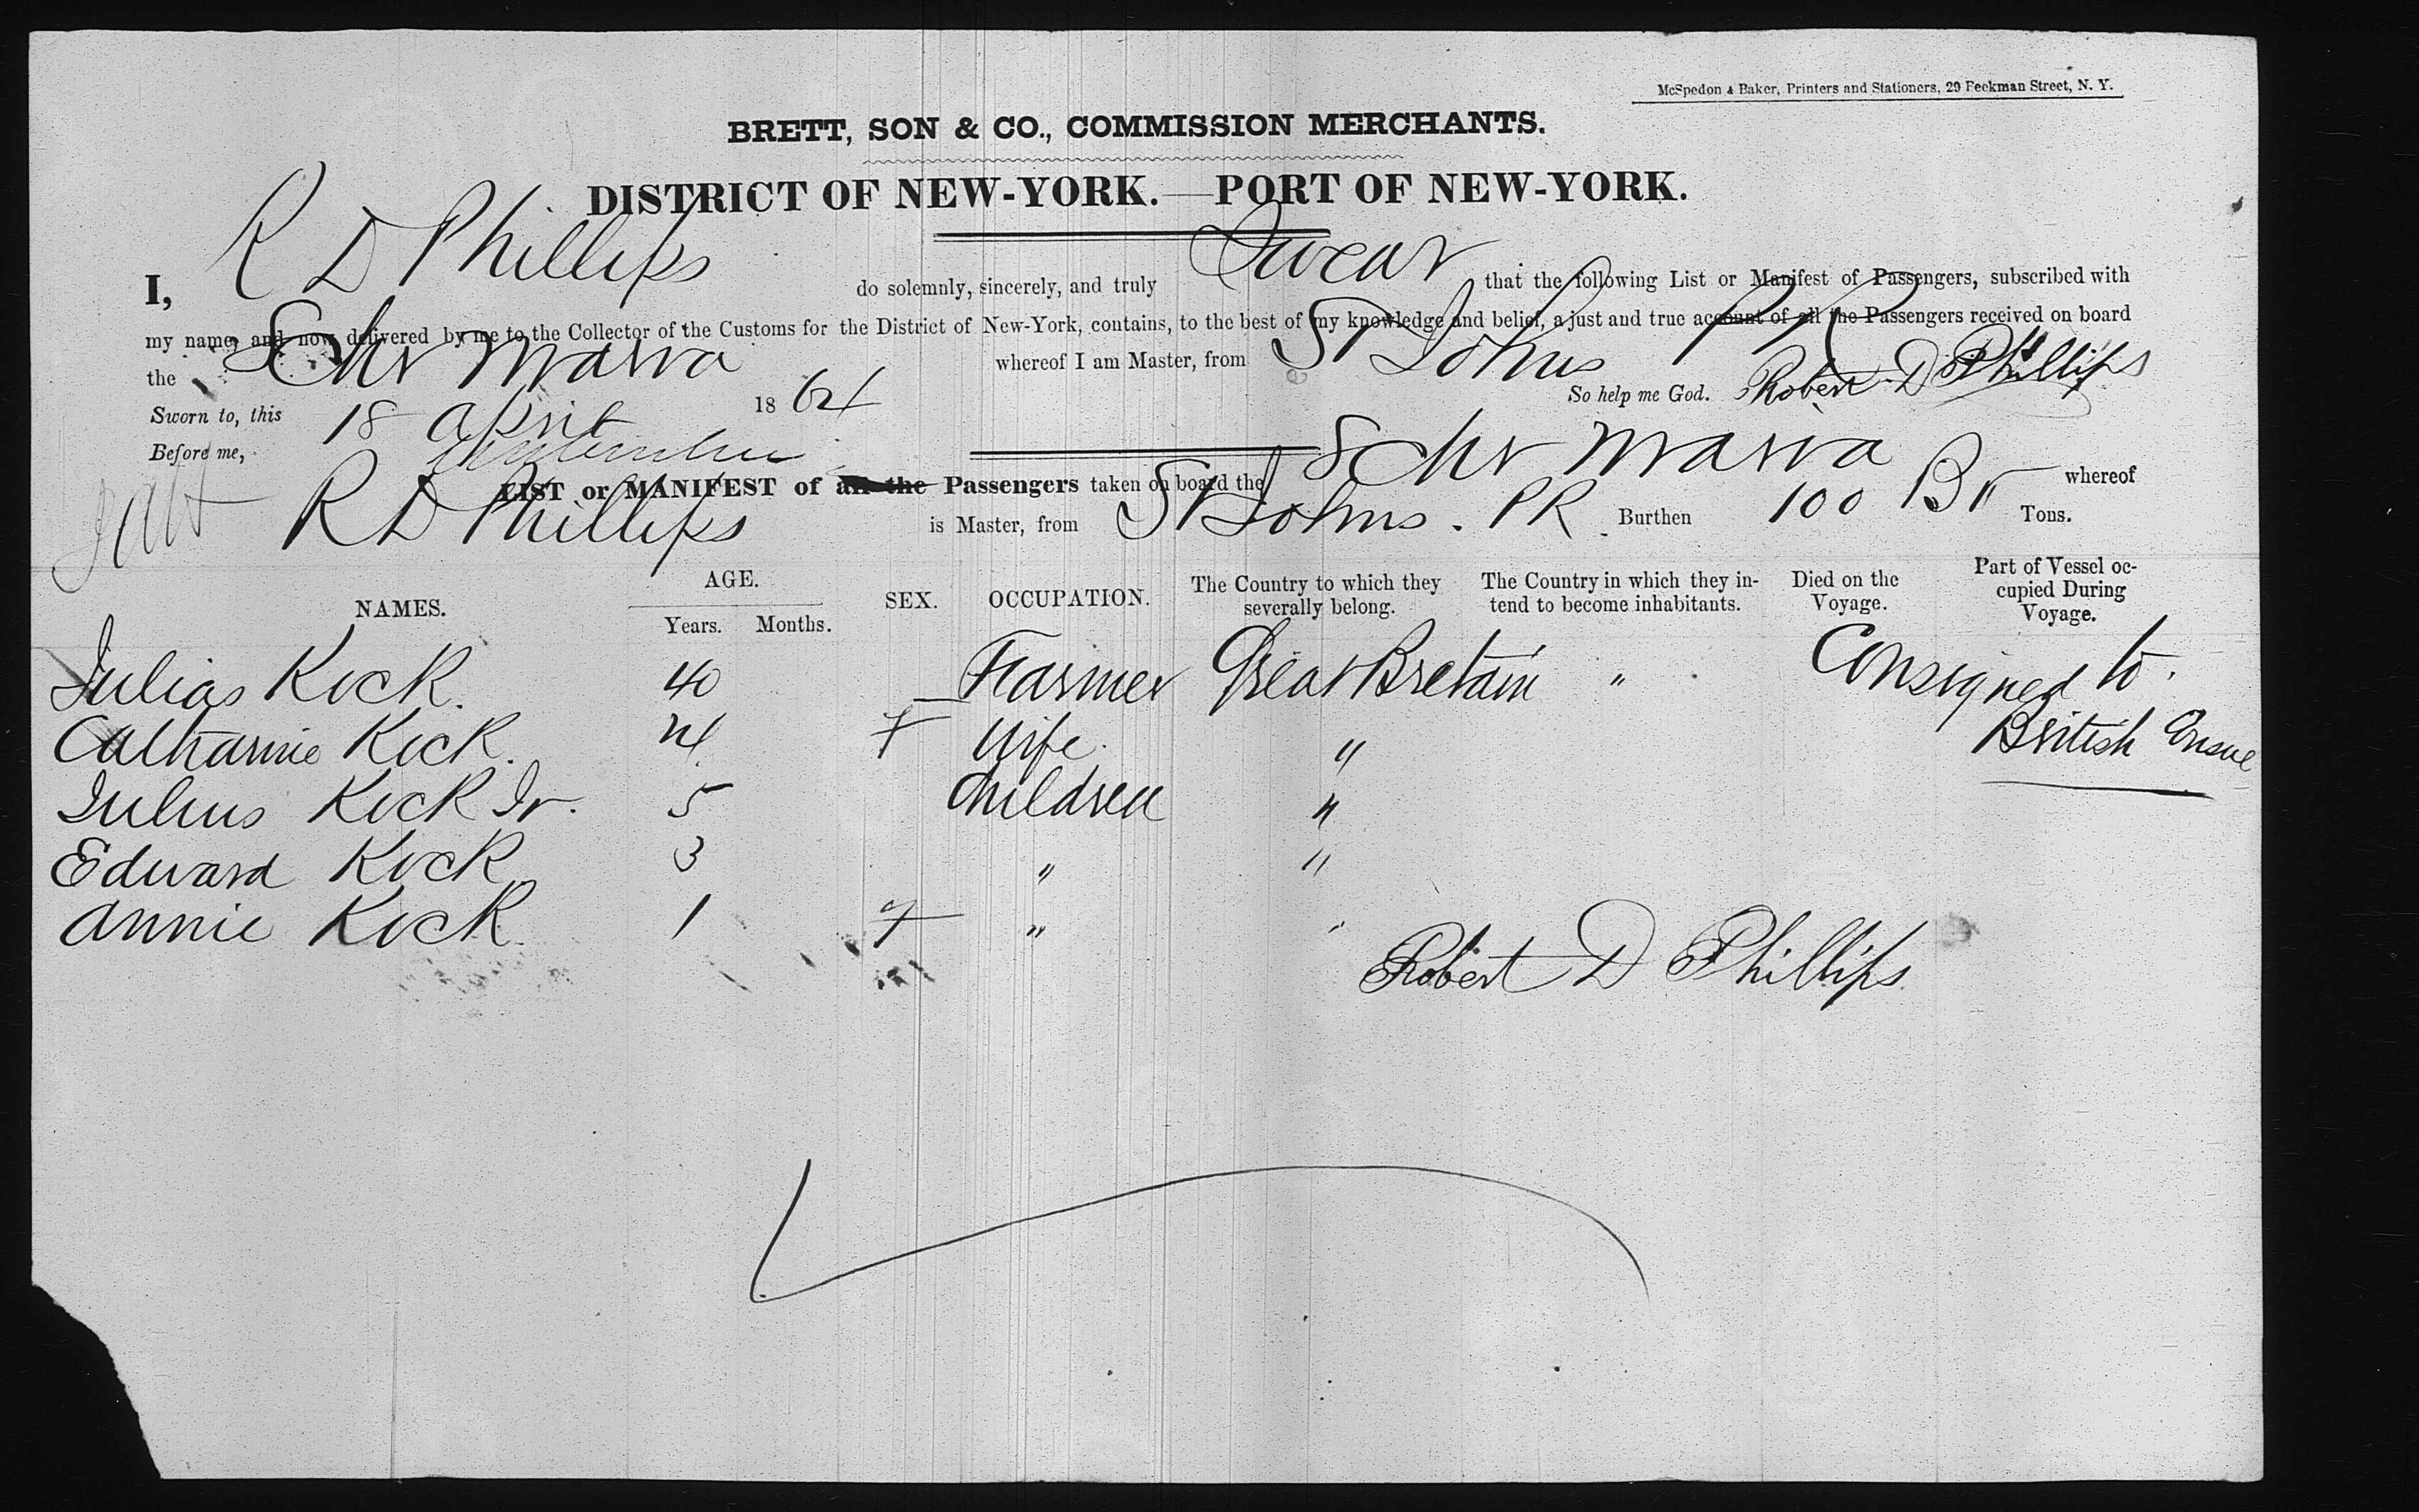 McSpedon & Baker, Printers and Stationers, 29 Beekman Street, N. Y.
BRETT, SON & CO., COMMISSION MERCHANTS.
DISTRICT OF NEW-YORK.—PORT OF NEW-YORK.
I, R D Phillips do solemnly, sincerely, and truly Swear that the following List or Manifest of Passengers, subscribed with
my name, and now delivered by me to the Collector of the Customs for the District of New-York, contains, to the best of my knowledge and belief, a just and true account of all the Passengers received on board
the Schr Maria whereof I am Master, from St Johns P R
Sworn to, this 18 April 1864 So help me God. Robert D Phillips
Before me,
LIST or MANIFEST of all the Passengers taken on board the Schr Maria Br whereof
R D Phillips is Master, from St Johns. PR Burthen 100 Tons.
NAMES. AGE. Years. Months. SEX. OCCUPATION. The Country to which they severally belong. The Country in which they intend to become inhabitants. Died on the Voyage. Part of Vessel occupied During Voyage.
Julias Kock. 40 Farmer Great Bretain " Consigned to
Catharine Kock. 24 F Wife. " British
Julius Kock Jr. 5 Children "
Edward Kock 3 " "
Annie Kock 1 F " "
Robert D Phillips